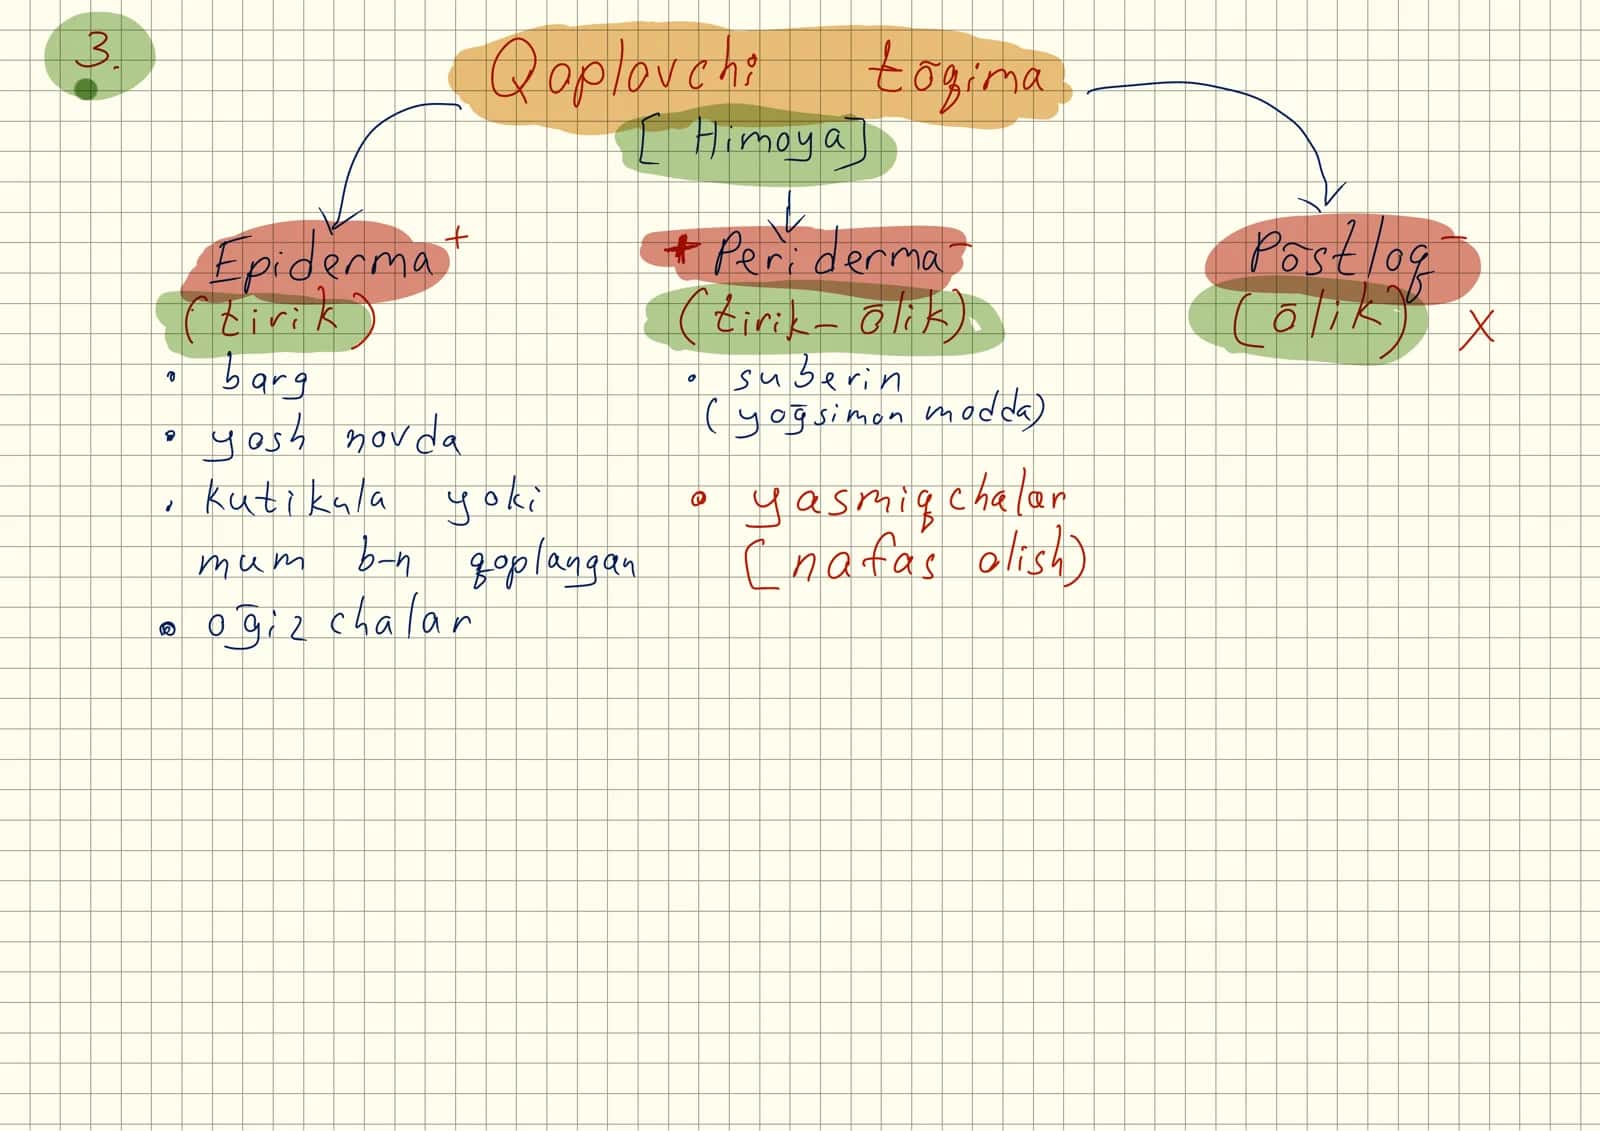 3.
Qoplovchi tōqima
[Himoya]
Epiderma +
(tirik)
• barg
• yosh novda
• kutikula yoki
mum b-n qoplangan
• oḡizchalar
+ Periderma -
(tirik-ōlik)
• suberin
(yoḡsimon modda)
• yasmiqchalar
(nafas olish)
Pōstloq -
(ōlik) X